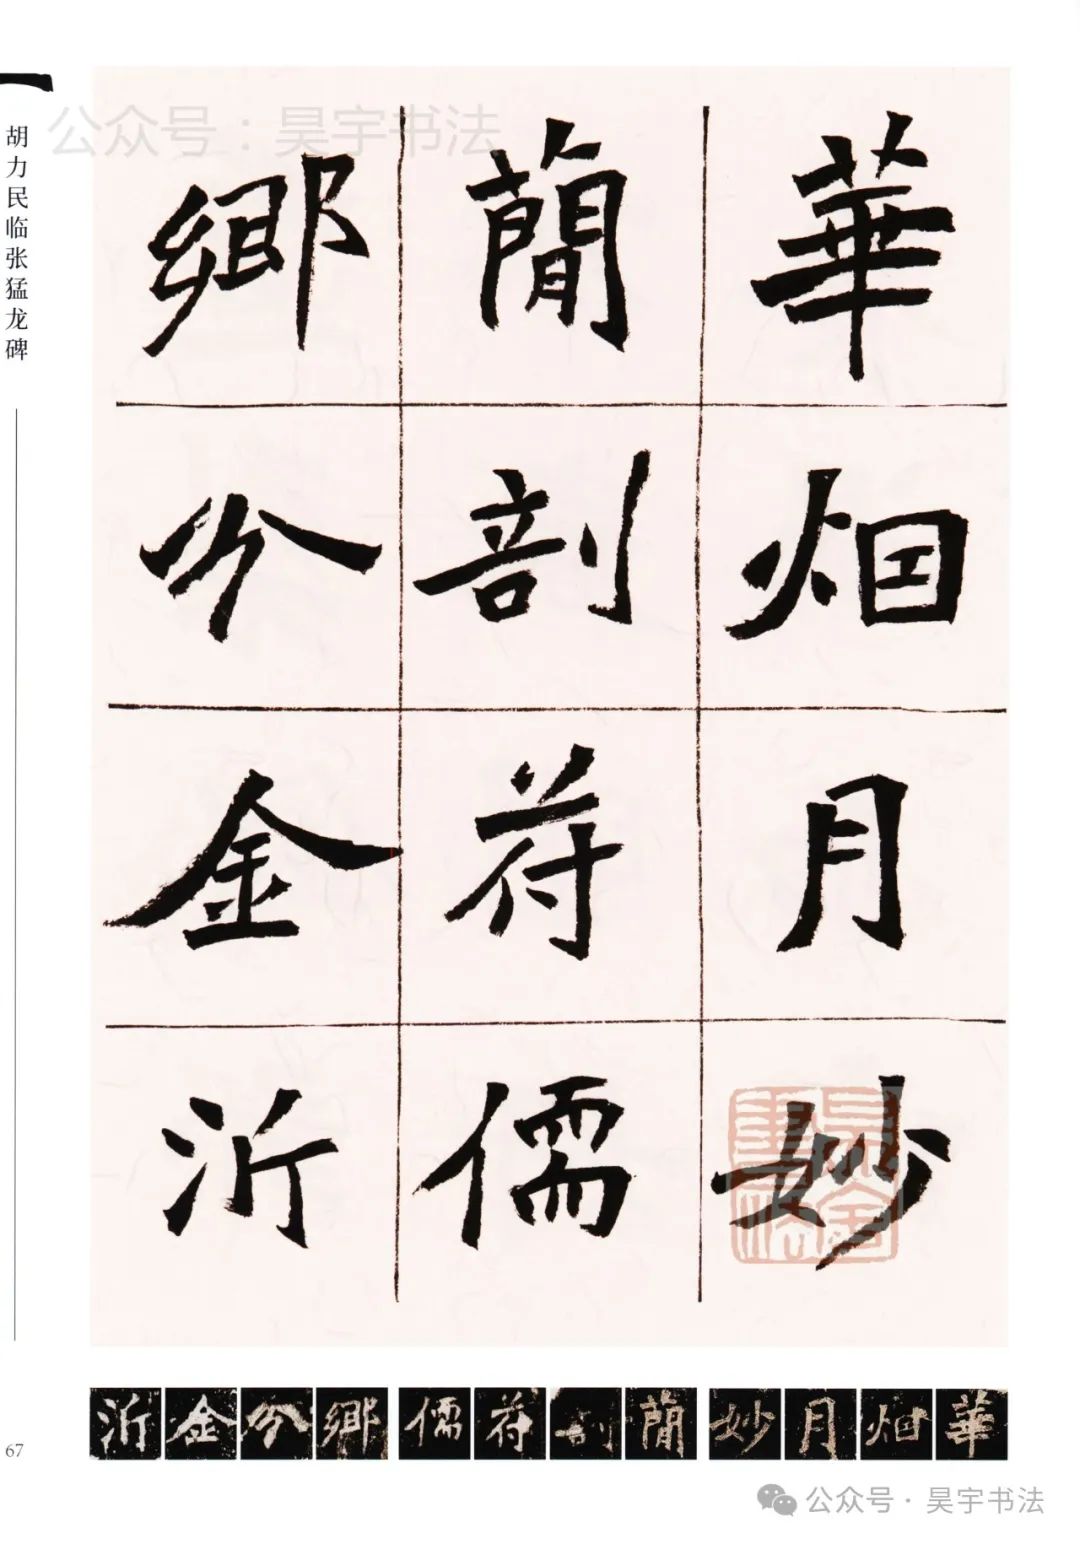 胡力民临张猛龙碑
公众号：昊宇书法
華烟月妙
簡剖苻儒
鄉分金沂
華烟月妙
簡剖苻儒
鄉分金沂
67
公众号·昊宇书法